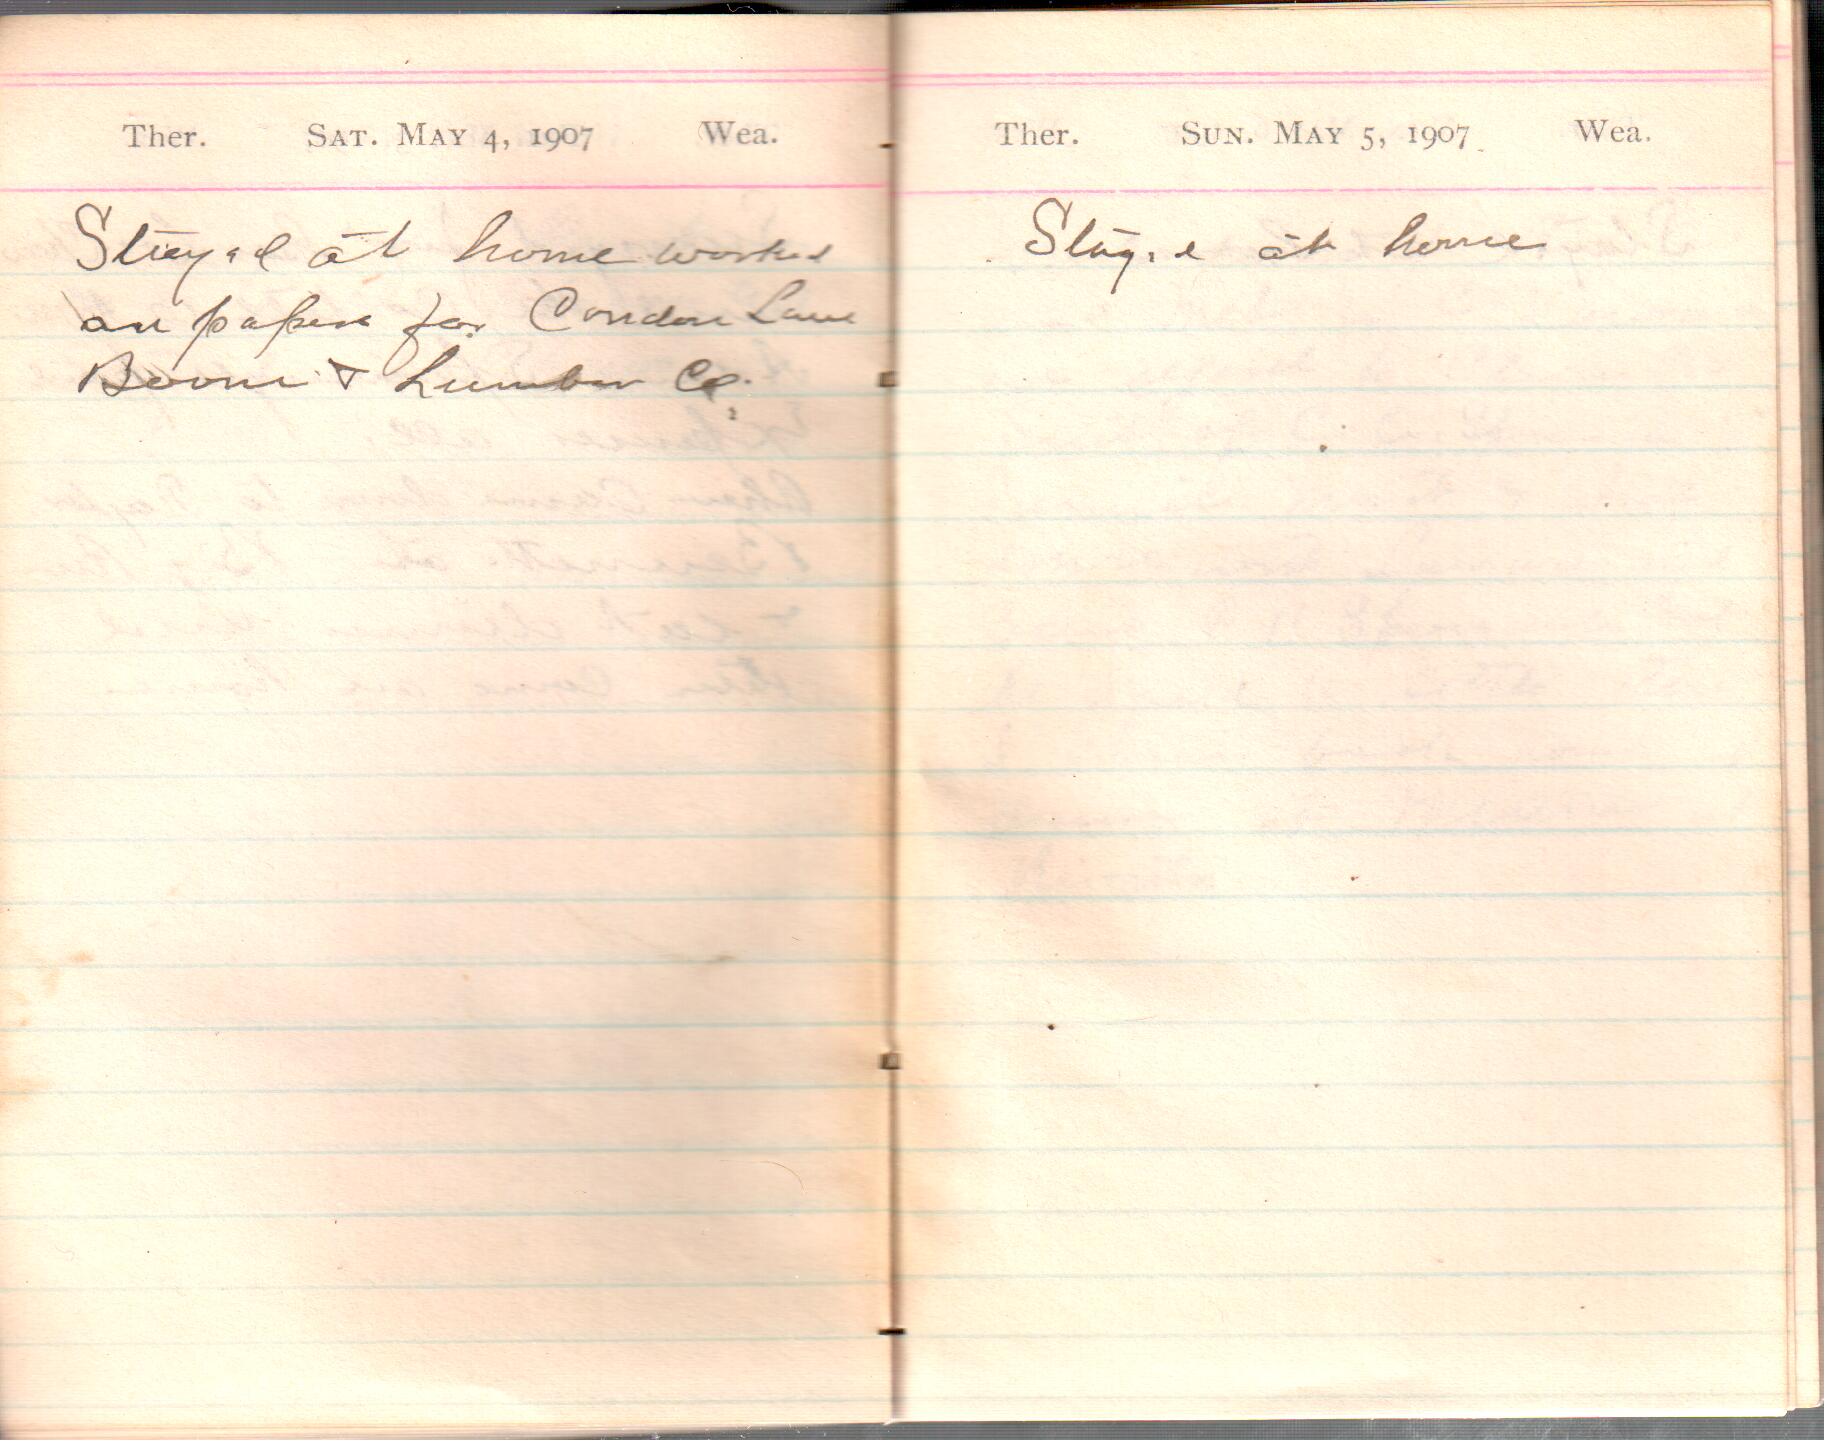 Ther. SAT. MAY 4, 1907 Wea.
Stayed at home worked
on papers for Condon Lane
Boom & Lumber Co.
Ther. SUN. MAY 5, 1907 Wea.
Stayed at home